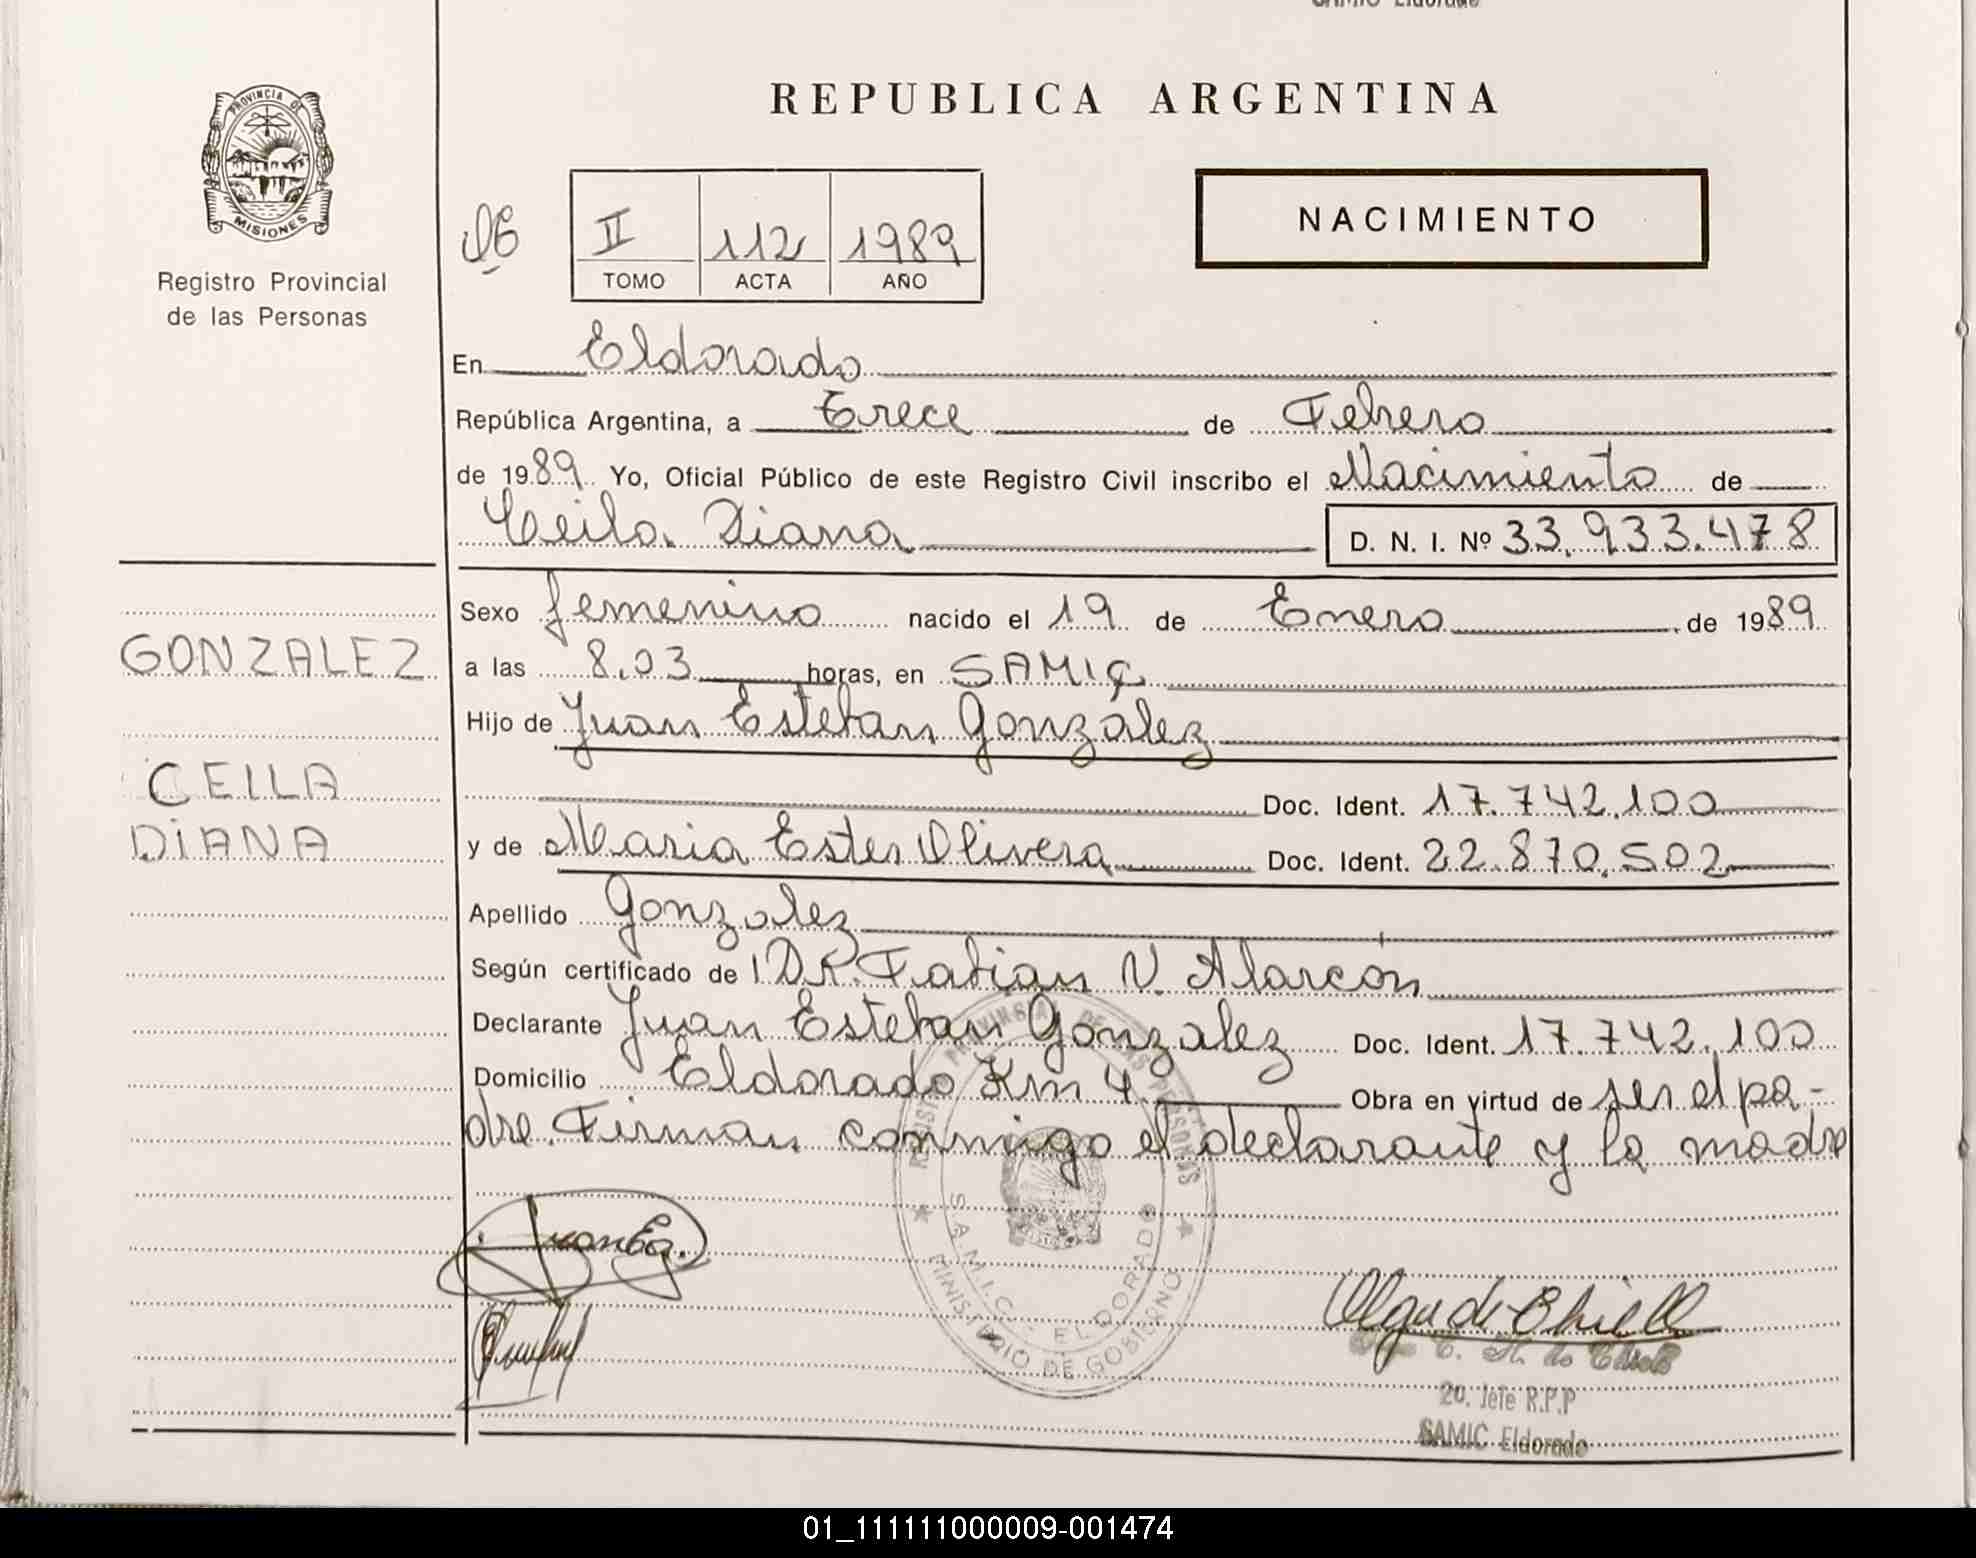 SAMIC Eldorado
PROVINCIA DE
MISIONES
Registro Provincial
de las Personas
REPUBLICA ARGENTINA
II 112 1989
TOMO ACTA AÑO
NACIMIENTO
En Eldorado
República Argentina, a Trece de Febrero
de 1989 Yo, Oficial Público de este Registro Civil inscribo el Nacimiento de
Ceila Diana D. N. I. Nº 33.933.478
GONZALEZ
CEILA
DIANA
Sexo femenino nacido el 19 de Enero de 1989
a las 8,03 horas, en SAMIC
Hijo de Juan Esteban González
Doc. Ident. 17.742.100
y de Maria Ester Olivera Doc. Ident. 22.870.502
Apellido Gonzalez
Según certificado de DR. Fabian V. Alarcon
Declarante Juan Esteban Gonzalez Doc. Ident. 17.742.100
Domicilio Eldorado Km 4 Obra en virtud de ser el pa-
dre. Firman conmigo el declarante y la madre
REGISTRO PROVINCIAL DE LAS PERSONAS
S.A.M.I.C. - ELDORADO
MINISTERIO DE GOBIERNO
Olga de Chiell
20. Jefe R.P.P
SAMIC Eldorado
01_111111000009-001474